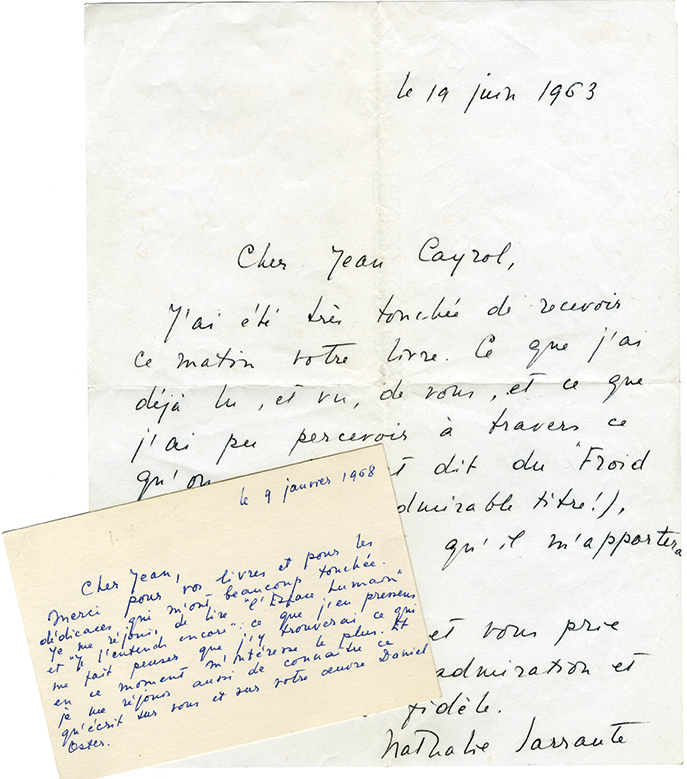 le 19 juin 1963
Cher Jean Cayrol,
J'ai été très touchée de recevoir
ce matin votre livre. Ce que j'ai
déjà lu, et vu, de vous, et ce que
j'ai pu percevoir à travers ce
qu'on t dit du "Froid
dmirable titre!),
qu'il m'apportera
et vous prie
admiration et
fidèle.
Nathalie Sarraute
le 9 janvier 1968
Cher Jean,
Merci pour vos livres et pour les
dédicaces qui m'ont beaucoup touchée.
Je me réjouis de lire "l'Espace humain"
et "Je l'entends encore": ce que j'en pressens
me fait penser que j'y trouverai ce qui
en ce moment m'intéresse le plus. Et
je me réjouis aussi de connaître ce
qu'écrit sur vous et sur votre œuvre Daniel
Oster.